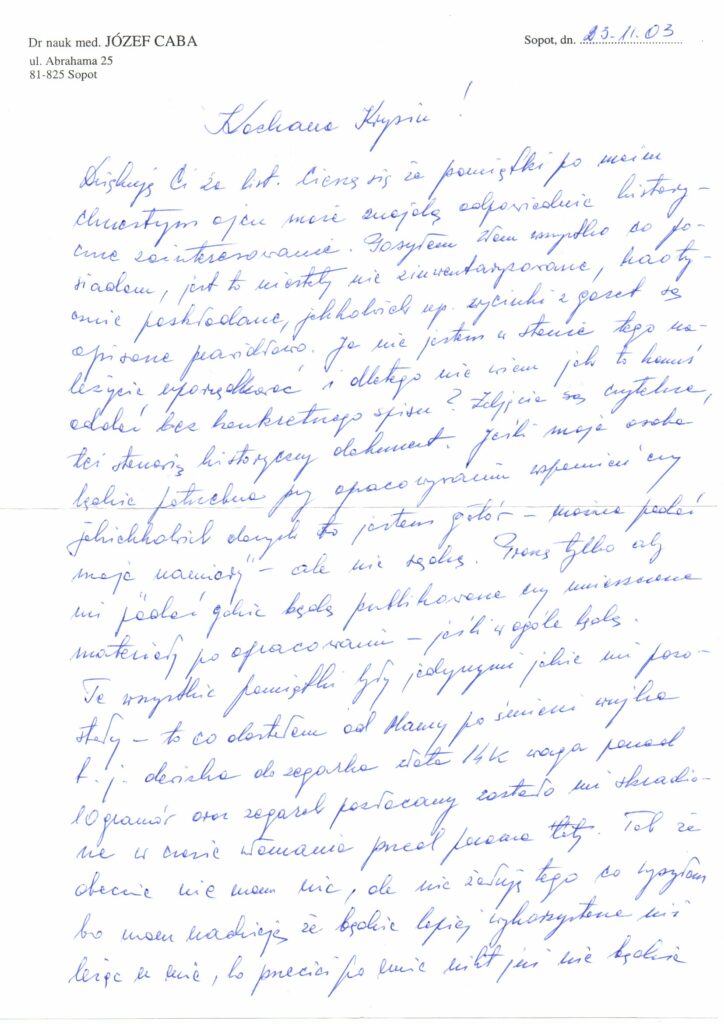 Dr nauk med. JÓZEF CABA
ul. Abrahama 25
81-825 Sopot
Sopot, dn. 23.11.03
Kochana Krysiu!
Dziękuję Ci za list. Cieszę się że pamiątki po moim
chrzestnym ojcu może znajdą odpowiednie history-
czne zainteresowanie. Posyłam Wam wszystko co po-
siadam, jest to niestety nie zinwentaryzowane, haoty-
cznie poskładane, jakkolwiek np. wycinki z gazet są
opisane prawidłowo. Ja nie jestem w stanie tego na-
leżycie uporządkować i dlatego nie wiem jak to komuś
oddać bez konkretnego spisu? Zdjęcia są czytelne,
też stanowią historyczny dokument. Jeśli moja osoba
będzie potrzebna przy opracowywaniu wspomnień czy
jakichkolwiek danych to jestem gotów – można podać
moje "namiary" – ale nie sądzę. Proszę tylko aby
mi podać gdzie będą publikowane czy umieszczone
materiały po opracowaniu – jeśli w ogóle będą.
Te wszystkie pamiątki były jedynymi jakie mi pozo-
stały – to co dostałem od Mamy po śmierci wujka
t. j. dewizka do zegarka złota 14K waga ponad
10 gramów oraz zegarek pozłacany zostało mi skradzio-
ne w czasie włamania przed paroma laty. Tak że
obecnie nie mam nic, ale nie żałuję tego co wysyłam
bo mam nadzieję że będzie lepiej wykorzystane niż
leżąc u mnie, bo przecież po mnie nikt już nie będzie